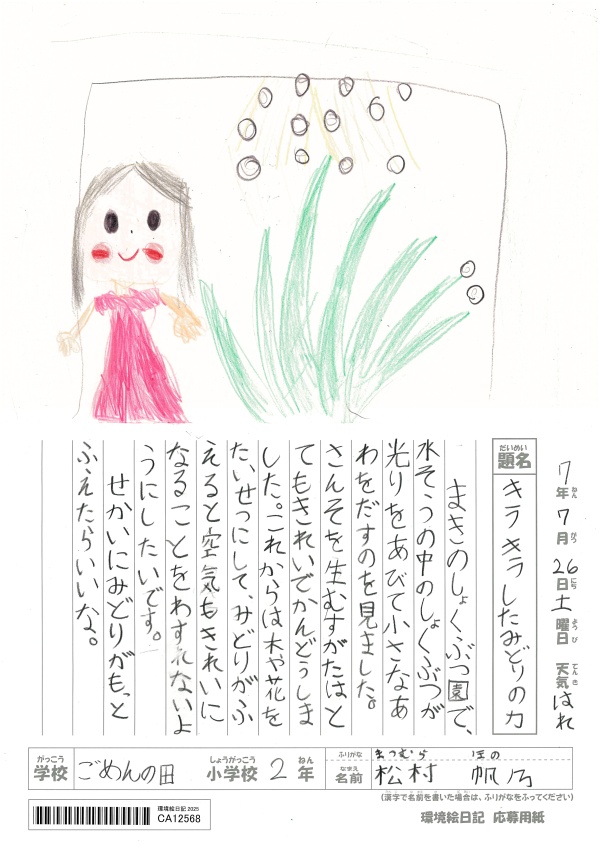 7年7月26日土曜日 天気はれ
題名 キラキラしたみどりの力
まきのしょくぶつ園で、
水そうの中のしょくぶつが
光りをあびて小さなあ
わをだすのを見ました。
さんそを生むすがたはと
てもきれいでかんどうしま
した。これからは木や花を
たいせつにして、みどりがふ
えると空気もきれいに
なることをわすれないよ
うにしたいです。
せかいにみどりがもっと
ふえたらいいな。
がっこう しょうがっこう ねん ふりがな まつむら ほの
学校 ごめんの田 小学校 2年 なまえ 名前 松村 帆乃
(漢字で名前を書いた場合は、ふりがなをふってください)
環境絵日記 2025
CA12568
環境絵日記 応募用紙